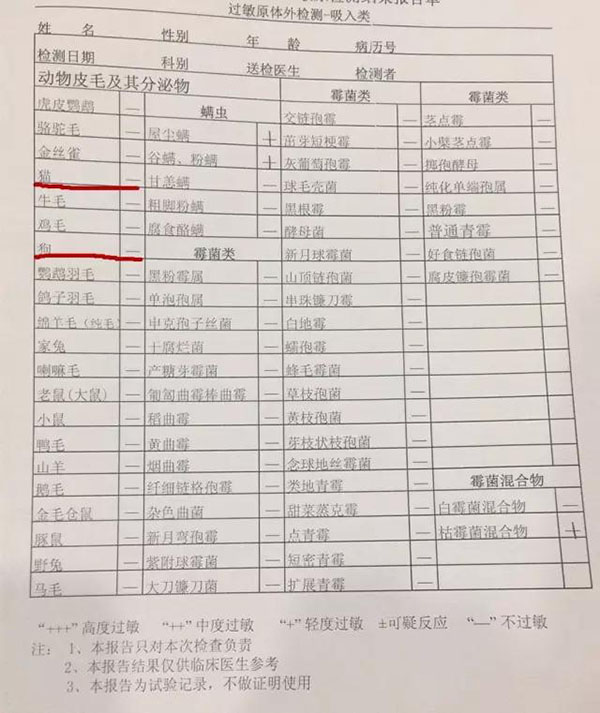 检测结果报告单
过敏原体外检测-吸入类
姓 名 性别 年 龄 病历号
检测日期 科别 送检医生 检测者
动物皮毛及其分泌物 霉菌类 霉菌类
虎皮鹦鹉 — 螨虫 交链孢霉 — 茎点霉 —
骆驼毛 — 屋尘螨 + 茁芽短梗霉 — 小檗茎点霉 —
金丝雀 — 谷螨、粉螨 + 灰葡萄孢霉 — 掷孢酵母 —
猫 — 甘恙螨 — 球毛壳菌 — 纯化单端孢属 —
牛毛 — 粗脚粉螨 — 黑根霉 — 黑粉霉 —
鸡毛 — 腐食酪螨 — 酵母菌 — 普通青霉 —
狗 — 霉菌类 新月球霉菌 — 好食链孢菌 —
鹦鹉羽毛 — 黑粉霉属 — 山顶链孢菌 — 腐皮镰孢霉菌 —
鸽子羽毛 — 单泡孢属 — 串珠镰刀霉 —
绵羊毛(纯毛) — 申克孢子丝菌 — 白地霉 —
家兔 — 干腐烂菌 — 蠕孢霉 —
喇嘛毛 — 产糖芽霉菌 — 蜂毛霉菌 —
老鼠(大鼠) — 匍匐曲霉棒曲霉 — 草枝孢菌 —
小鼠 — 稻曲霉 — 黄枝孢菌 —
鸭毛 — 黄曲霉 — 芽枝状枝孢菌 —
山羊 — 烟曲霉 — 念球地丝霉菌 —
鹅毛 — 纤细链格孢霉 — 类地青霉 — 霉菌混合物
金毛仓鼠 — 杂色曲菌 — 甜菜蒸克霉 — 白霉菌混合物 —
豚鼠 — 新月弯孢霉 — 点青霉 — 枯霉菌混合物 +
野兔 — 紫附球霉菌 — 短密青霉 —
马毛 — 大刀镰刀菌 — 扩展青霉 —
“+++”高度过敏 “++”中度过敏 “+”轻度过敏 ±可疑反应 “—”不过敏
注: 1、本报告只对本次检查负责
2、本报告结果仅供临床医生参考
3、本报告为试验记录，不做证明使用